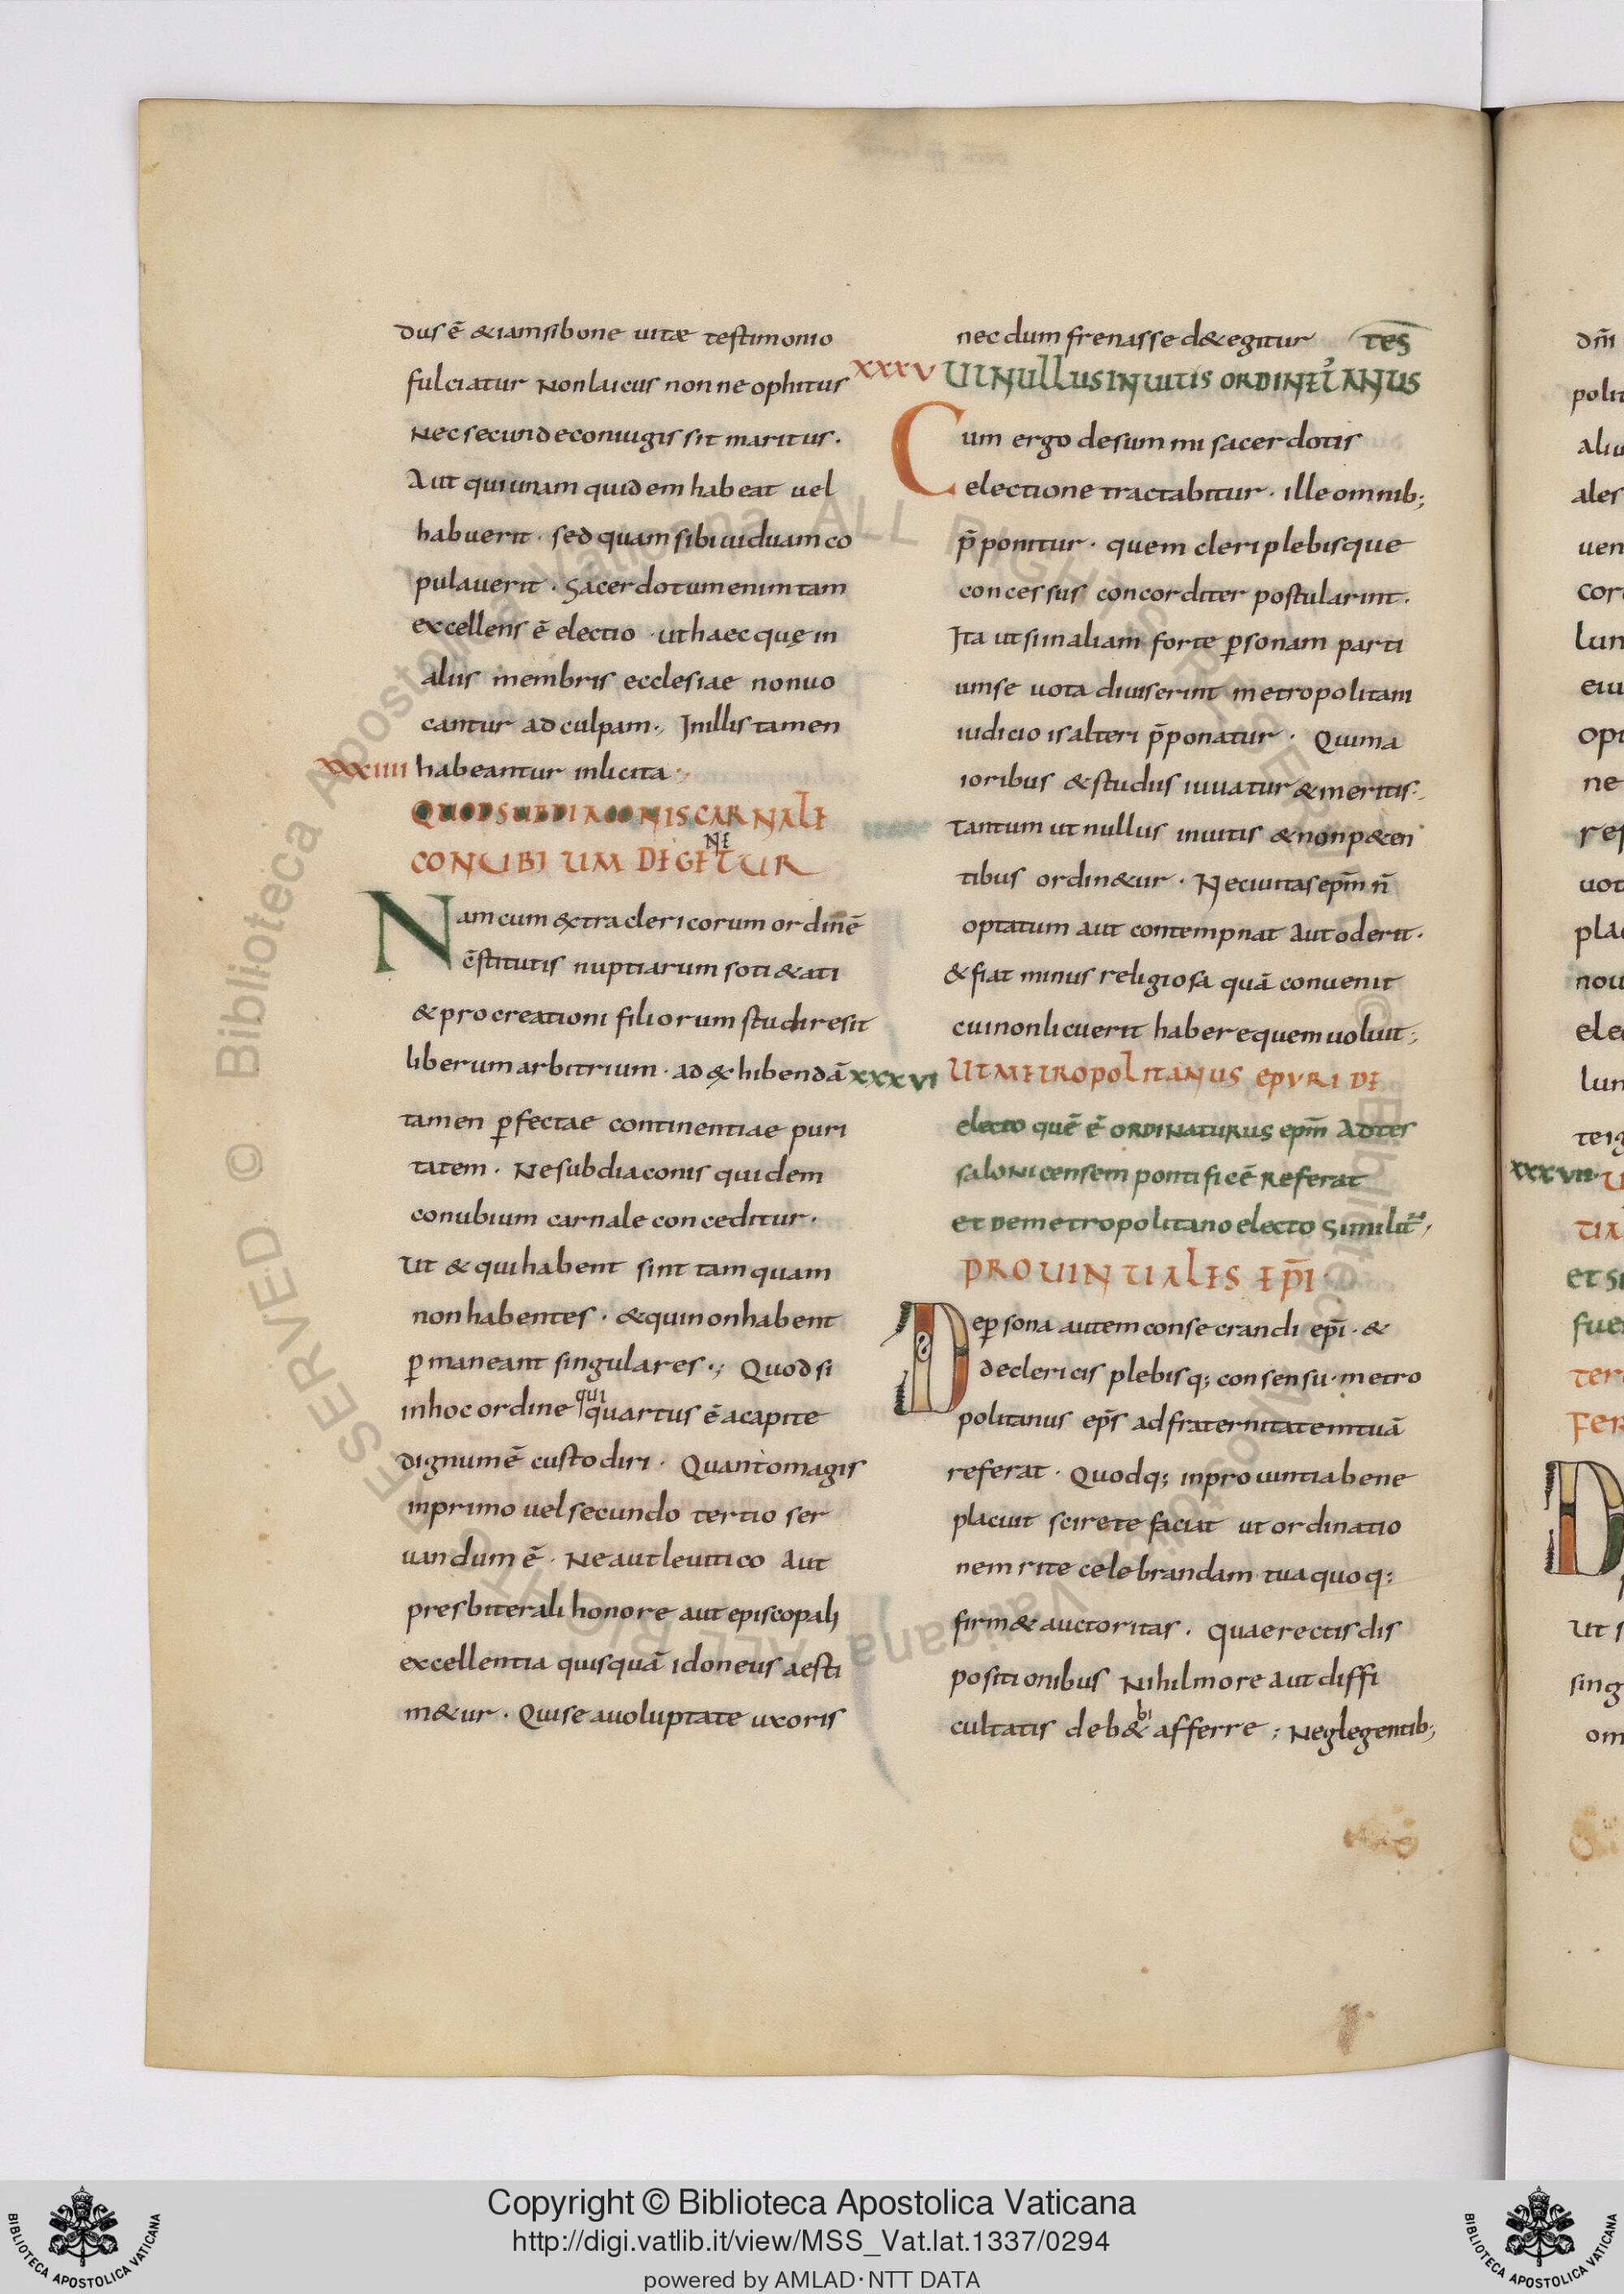 dus ē &iam si bone uitæ testimonio
fulciatur Non laicus non neophitus
Nec secunde coniugis sit maritus.
Aut qui unam quidem habeat uel
habuerit · sed quam sibi uiduam co
pulauerit · Sacerdotum enim tam
excellens ē electio · ut haec quę in
aliis membris ecclesiae non uo
cantur ad culpam ·, In illis tamen
XXXIIII habeantur inlicita ·,
QUOD SUBDIACONIS CARNALE
CONUBIUM DEGETUR
NE
Nam cum extra clericorum ordinē
cstitutis nuptiarum soti&ati
& procreationi filiorum studiresit
liberum arbitrium · ad exhibendā
tamen ꝑfectae continentiae puri
tatem · Ne subdiaconis quidem
conubium carnale conceditur ·
Ut & qui habent sint tamquam
non habentes · & qui non habent
ꝑmaneant singulares ·; Quod si
in hoc ordine qui quartus ē a capite
dignum ē custodiri · Quanto magis
in primo uel secundo tertio ser
uandum ē · Ne aut leuitico aut
presbiterali honore aut episcopali
excellentia quisquā idoneus aesti
m&ur · Qui se a uoluptate uxoris
nec dum frenasse d&egitur tes
XXXV UT NULLUS INUITIS ORDINET̉ ANUS
Cum ergo de summi sacerdotis
electione tractabitur · ille omnib;
p̄ponitur · quem cleri plebisque
concessus concorditer postularint.
Ita ut si in aliam forte ꝑsonam parti
um se uota diuiserint metropolitani
iudicio is alteri p̄ponatur · Qui ma
ioribus & studiis iuuatur & meritis ·
Tantum ut nullus inuitis & non p&en
tibus ordin&ur · Ne ciuitas ep̄m n̄
optatum aut contempnat aut oderit ·
& fiat minus religiosa quā conuenit
cui non licuerit habere quem uoluit ;
XXXVI UT METROPOLITANUS EPURI DE
electo quē ē ORDINATURUS ep̄m Adtes
saloNicensem pontificē Referat
et De metropolitano electo Similit̄
PROUINTIALES EP̄I
De ꝑsona autem consecrandi ep̄i · &
de clericis plebisq; consensu · metro
politanus ep̄s ad fraternitatem tuā
referat · Quodq; in prouintia bene
placuit scire te faciat ut ordinatio
nem rite celebrandam tua quoq;
firm& auctoritas · Quae rectis dis
positionibus Nihil more aut diffi
cultatis deb& bi afferre ; Neglegentib;
dn̄i
polit
aliu
ales
uen
cor
lun
eiu
opt
ne
res
uot
pla
nou
ele
lun
teig
XXXVII U
TIA
et si
fue
ter
FER
D
Ut s
sing
om
© Biblioteca Apostolica Vaticana ALL RIGHTS RESERVED
© Biblioteca Apostolica Vaticana ALL RIGHTS RESERVED
Copyright © Biblioteca Apostolica Vaticana
http://digi.vatlib.it/view/MSS_Vat.lat.1337/0294
powered by AMLAD·NTT DATA
BIBLIOTECA APOSTOLICA VATICANA
BIBLIOTECA APOSTOLICA VATICANA